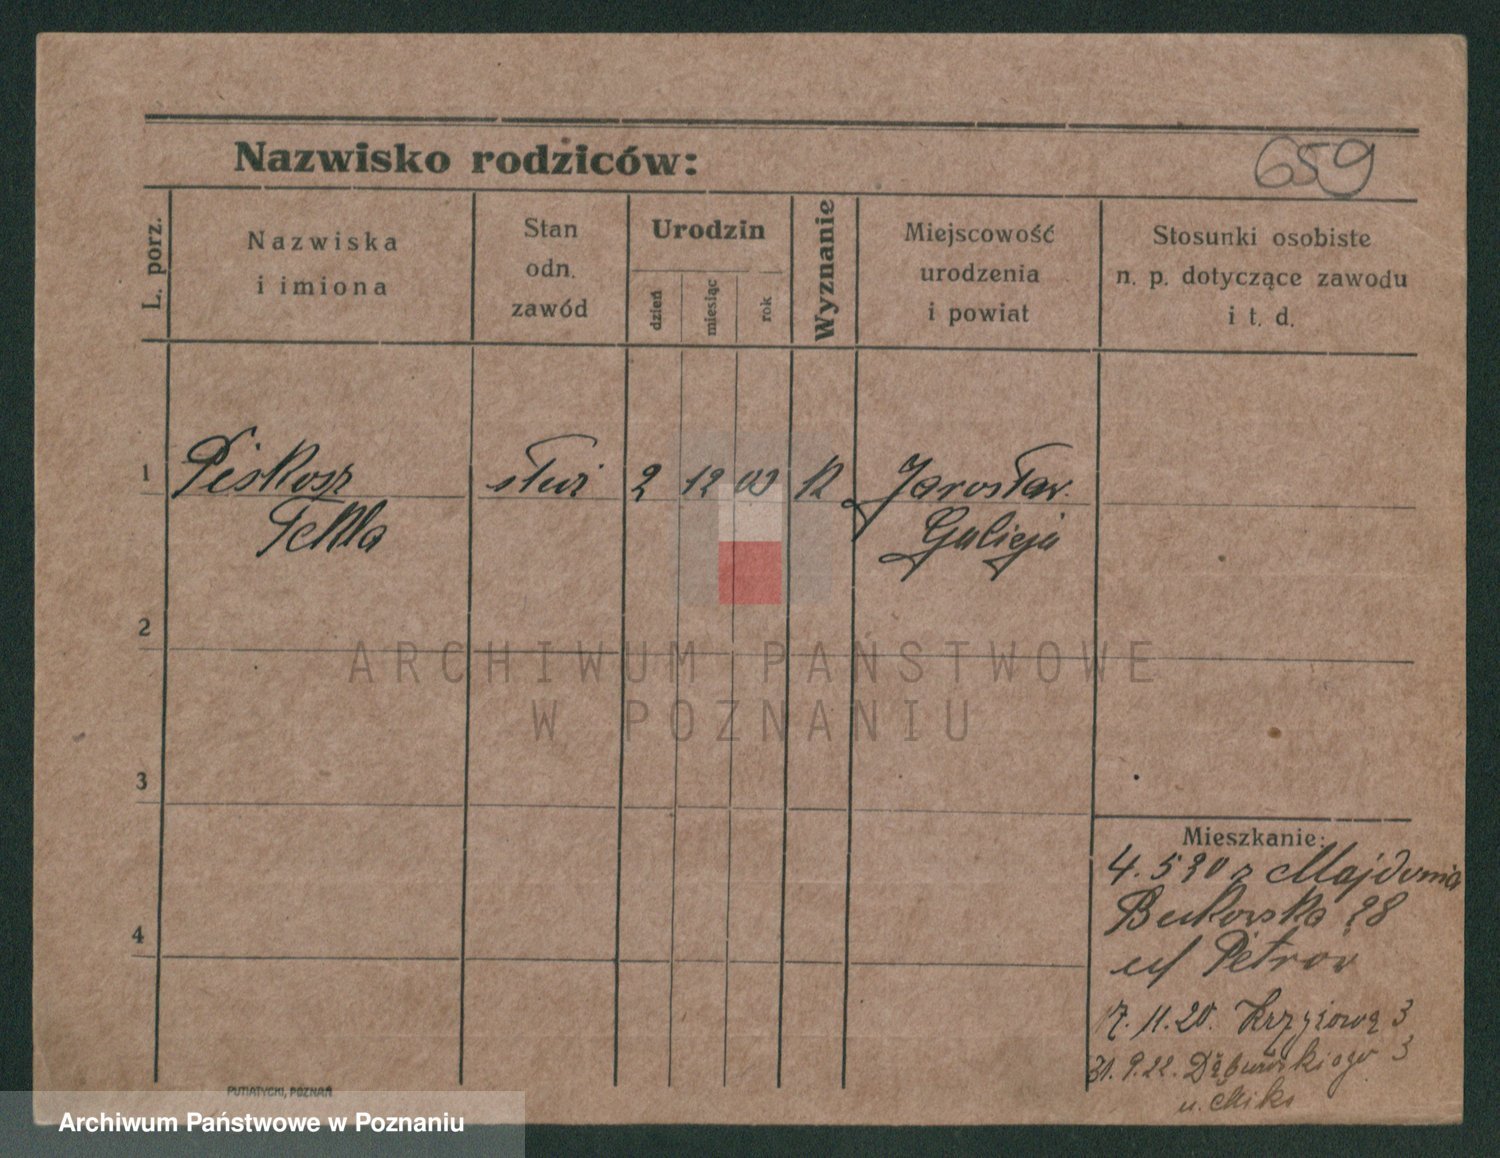 Nazwisko rodziców:
659
L. porz.
Nazwiska
i imiona
Stan
odn.
zawód
Urodzin
dzień
miesiąc
rok
Wyznanie
Miejscowość
urodzenia
i powiat
Stosunki osobiste
n. p. dotyczące zawodu
i t. d.
1
Piskosz służ 2 12 03 K Jarosław.
Tekla Galicja
2
ARCHIWUM PAŃSTWOWE
W POZNANIU
3
Mieszkanie:
4. 5 20 z
Bukowska 28
u/ Piotrow
4
17. 11. 20. Krzyżowa 3
31. 9. 22. Dąbrowskiego 3
u.
PUTIATYCKI, POZNAŃ
Archiwum Państwowe w Poznaniu